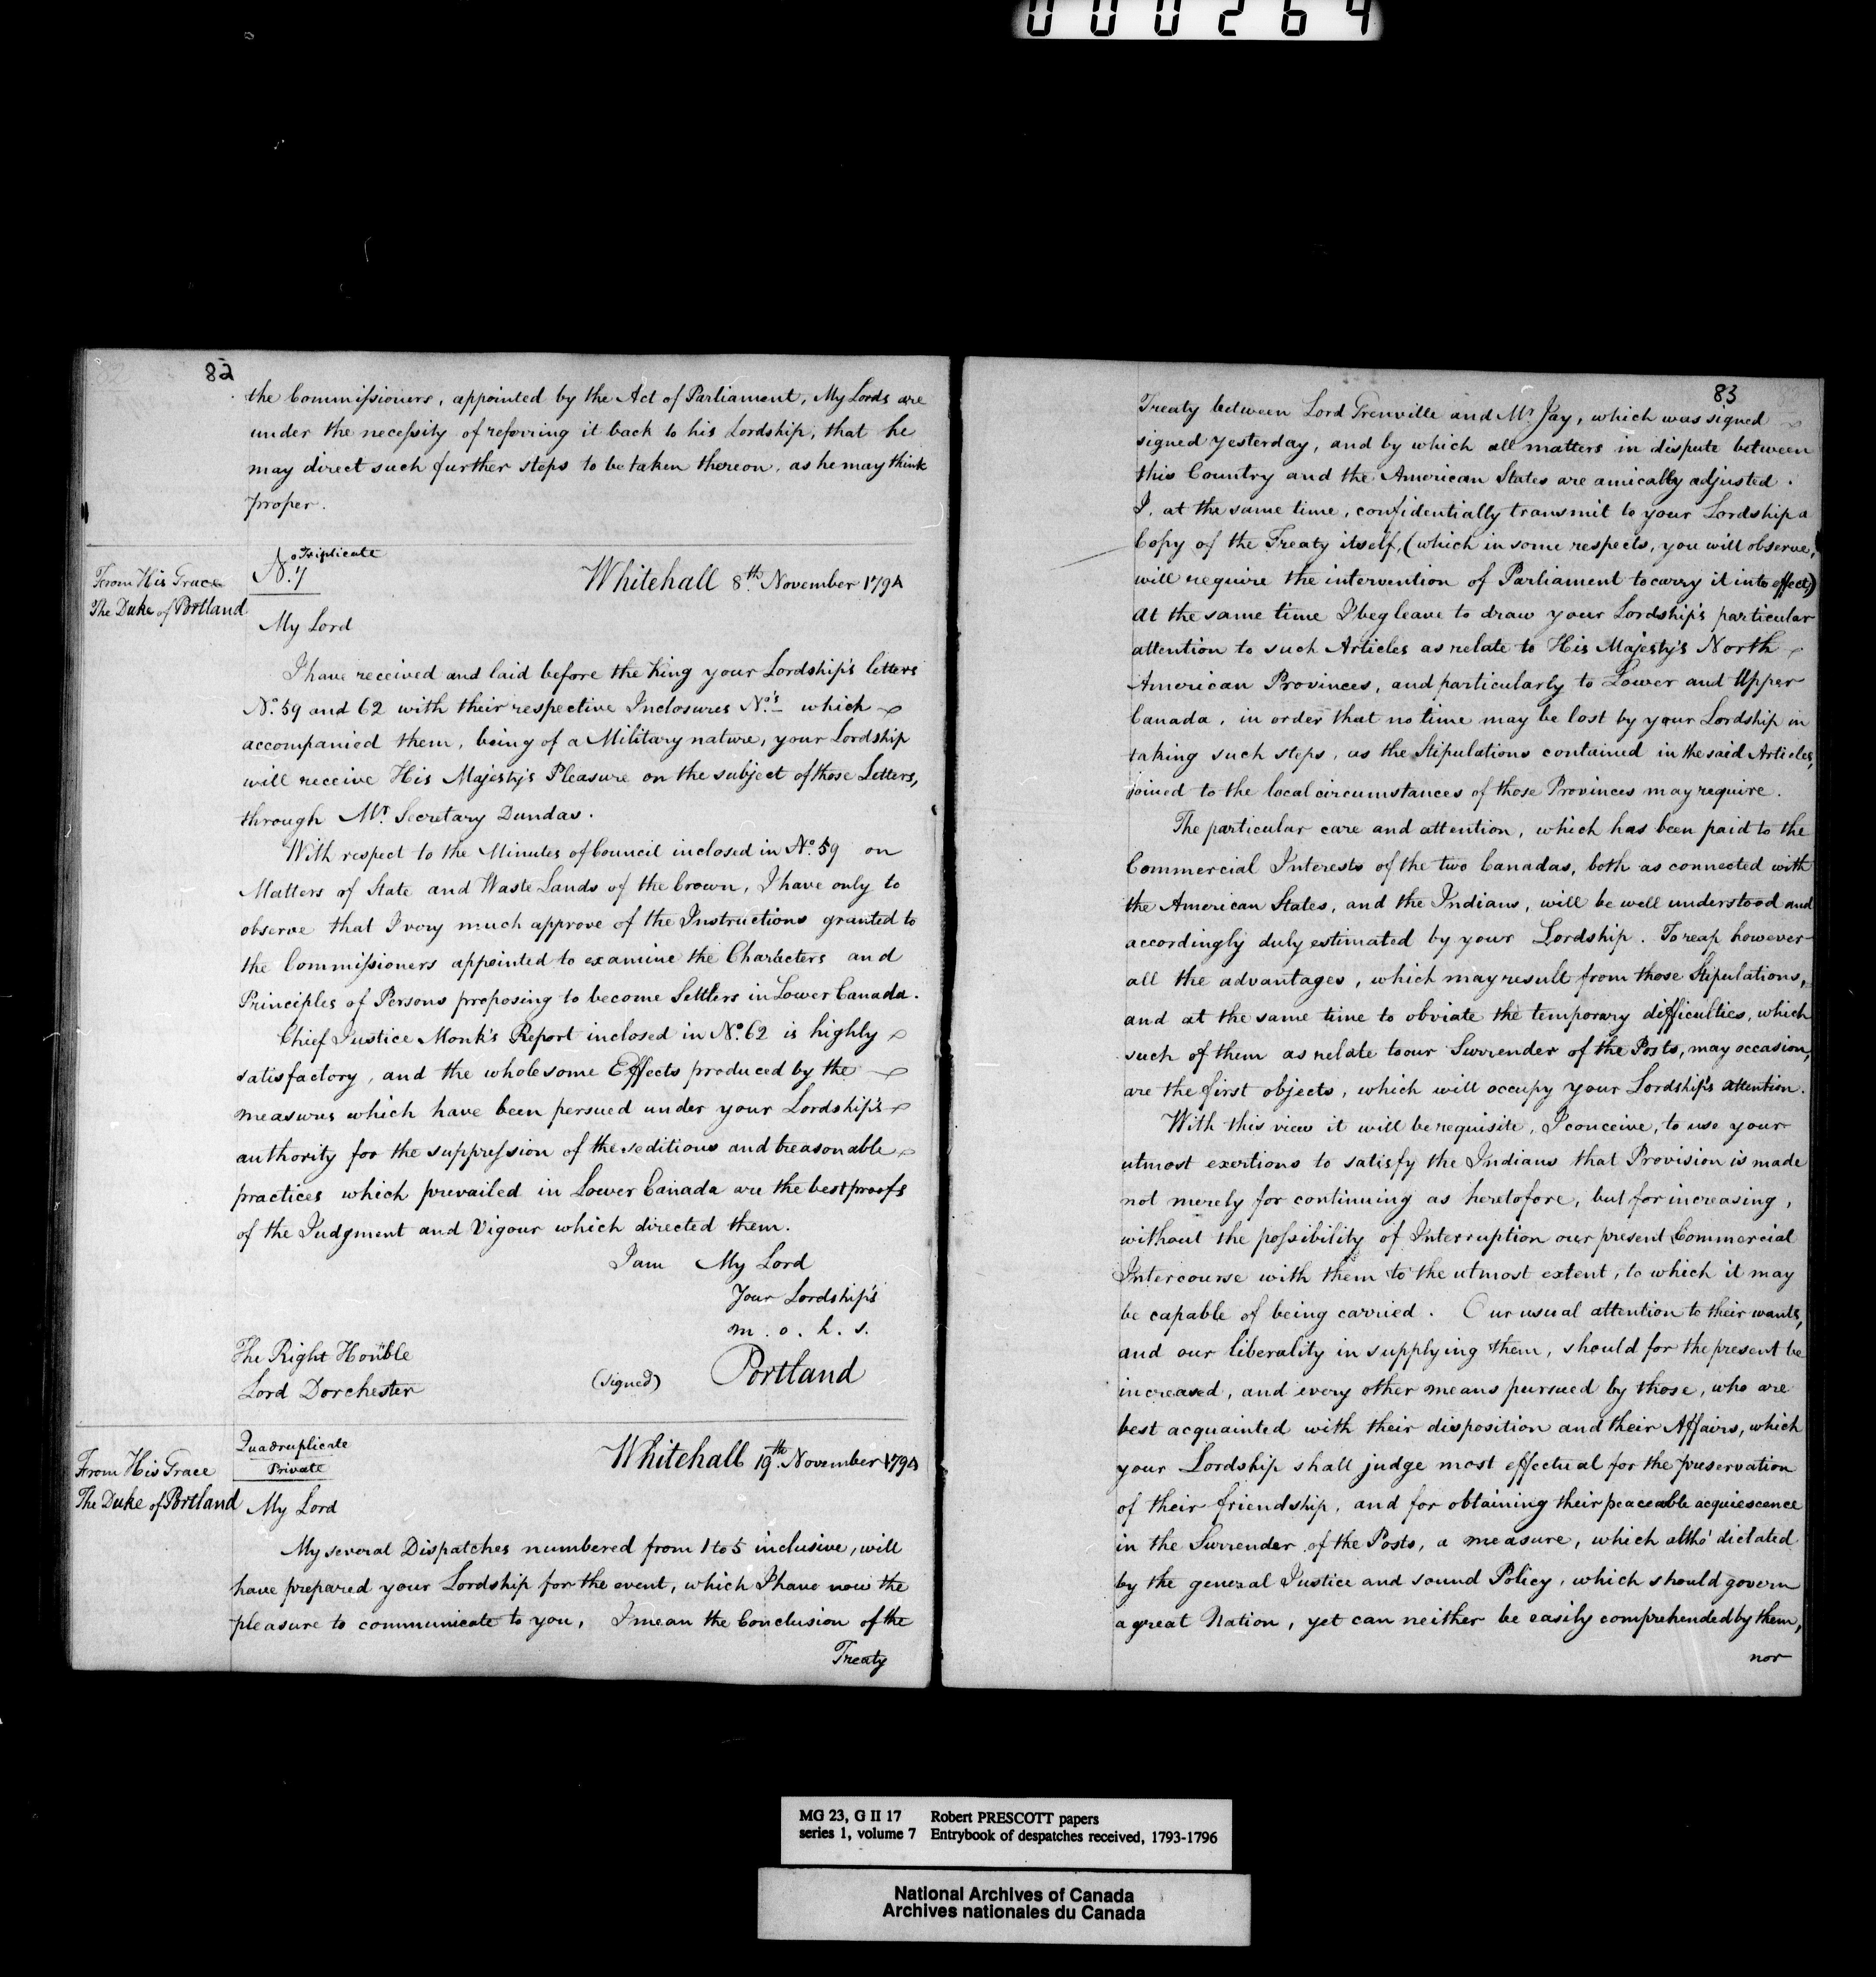 000264
82
the Commissioners, appointed by the Act of Parliament, My Lords are
under the necessity of referring it back to his Lordship, that he
may direct such further steps to be taken thereon, as he may think
proper.
Triplicate
No. 7
Whitehall 8th. November 1794
From His Grace
The Duke of Portland
My Lord
I have received and laid before the King your Lordship's letters
No. 59 and 62 with their respective Inclosures No.s which
accompanied them, being of a Military nature, your Lordship
will receive His Majesty's Pleasure on the subject of those Letters,
through Mr. Secretary Dundas.
With respect to the Minutes of Council inclosed in No. 59 on
Matters of State and Waste Lands of the Crown, I have only to
observe that I very much approve of the Instructions granted to
the Commissioners appointed to examine the Charecters and
Principles of Persons proposing to become Settlers in Lower Canada.
Chief Justice Monk's Report inclosed in No. 62 is highly
satisfactory, and the wholesome Effects produced by the
measures which have been persued under your Lordship's
authority for the suppression of the seditious and treasonable
practices which prevailed in Lower Canada are the best proofs
of the Judgment and Vigour which directed them.
I am My Lord
Your Lordship's
m. o. h. s.
(signed) Portland
The Right Honble
Lord Dorchester
Quadruplicate
Private
Whitehall 19th. November 1794
From His Grace
The Duke of Portland
My Lord
My several Dispatches numbered from 1 to 5 inclusive, will
have prepared your Lordship for the event, which I have now the
pleasure to communicate to you, I mean the Conclusion of the
Treaty
83
Treaty between Lord Grenville and Mr. Jay, which was signed
signed yesterday, and by which all matters in dispute between
this Country and the American States are amicably adjusted.
I, at the same time, confidentially transmit to your Lordship a
Copy of the Treaty itself, (which in some respects, you will observe,
will require the intervention of Parliament to carry it into effect)
At the same time I beg leave to draw your Lordship's particular
attention to such Articles as relate to His Majesty's North
American Provinces, and particularly to Lower and Upper
Canada, in order that no time may be lost by your Lordship in
taking such steps, as the Stipulations contained in the said Articles,
joined to the local circumstances of those Provinces may require.
The particular care and attention, which has been paid to the
Commercial Interests of the two Canadas, both as connected with
the American States, and the Indians, will be well understood and
accordingly duly estimated by your Lordship. To reap however
all the advantages, which may result from those Stipulations,
and at the same time to obviate the temporary difficulties, which
such of them as relate to our Surrender of the Posts, may occasion,
are the first objects, which will occupy your Lordship's attention.
With this view it will be requisite, I conceive, to use your
utmost exertions to satisfy the Indians that Provision is made
not merely for continuing as heretofore, but for increasing,
without the possibility of Interruption our present Commercial
Intercourse with them to the utmost extent, to which it may
be capable of being carried. Our usual attention to their wants,
and our liberality in supplying them, should for the present be
increased, and every other means pursued by those, who are
best acquainted with their disposition and their Affairs, which
your Lordship shall judge most effectual for the preservation
of their friendship, and for obtaining their peaceable acquiescence
in the Surrender of the Posts, a measure, which altho' dictated
by the general Justice and sound Policy, which should govern
a great Nation, yet can neither be easily comprehended by them,
nor
MG 23, G II 17 Robert PRESCOTT papers
series 1, volume 7 Entrybook of despatches received, 1793-1796
National Archives of Canada
Archives nationales du Canada